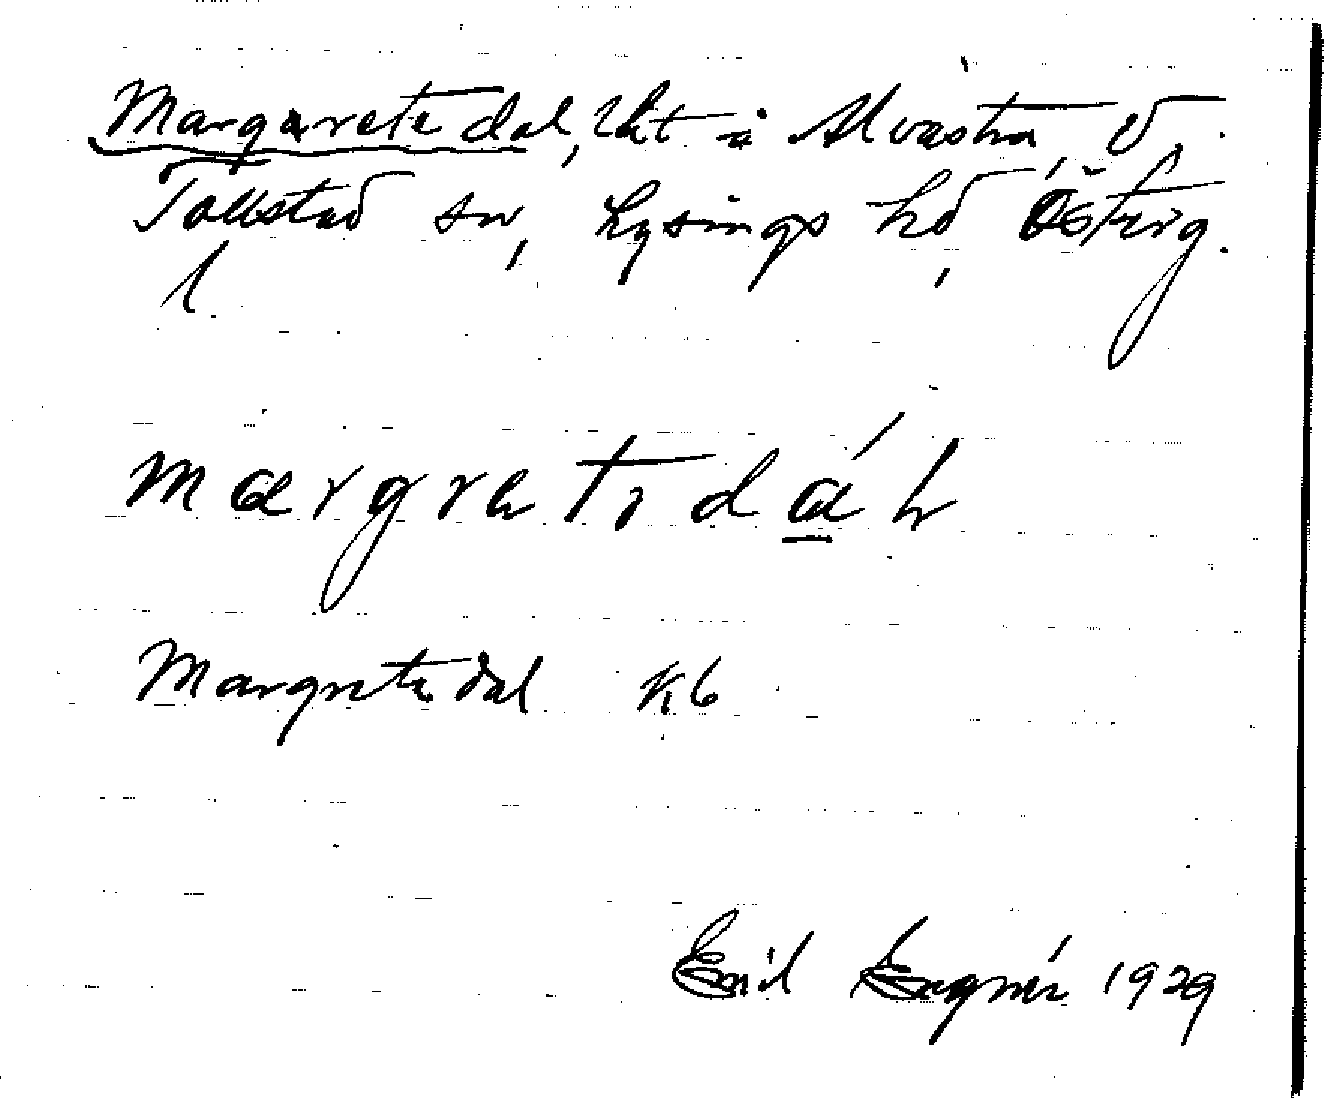 Margaretedal, lht i Alvastra, V.
Tollstad sn, Lysings hd, Österg.
margretrdáL
Margretedal Kb
Emil 1929